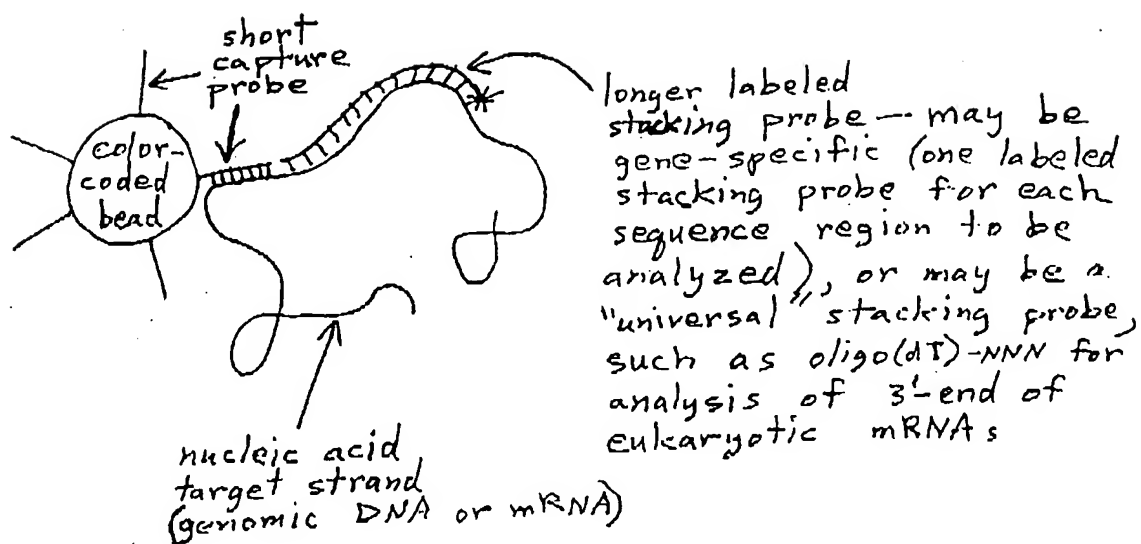 short
capture
probe
color-
coded
bead
longer labeled
stacking probe — may be
gene-specific (one labeled
stacking probe for each
sequence region to be
analyzed), or may be a
"universal" stacking probe,
such as oligo(dT)-NNN for
analysis of 3'-end of
eukaryotic mRNAs
nucleic acid
target strand
(genomic DNA or mRNA)